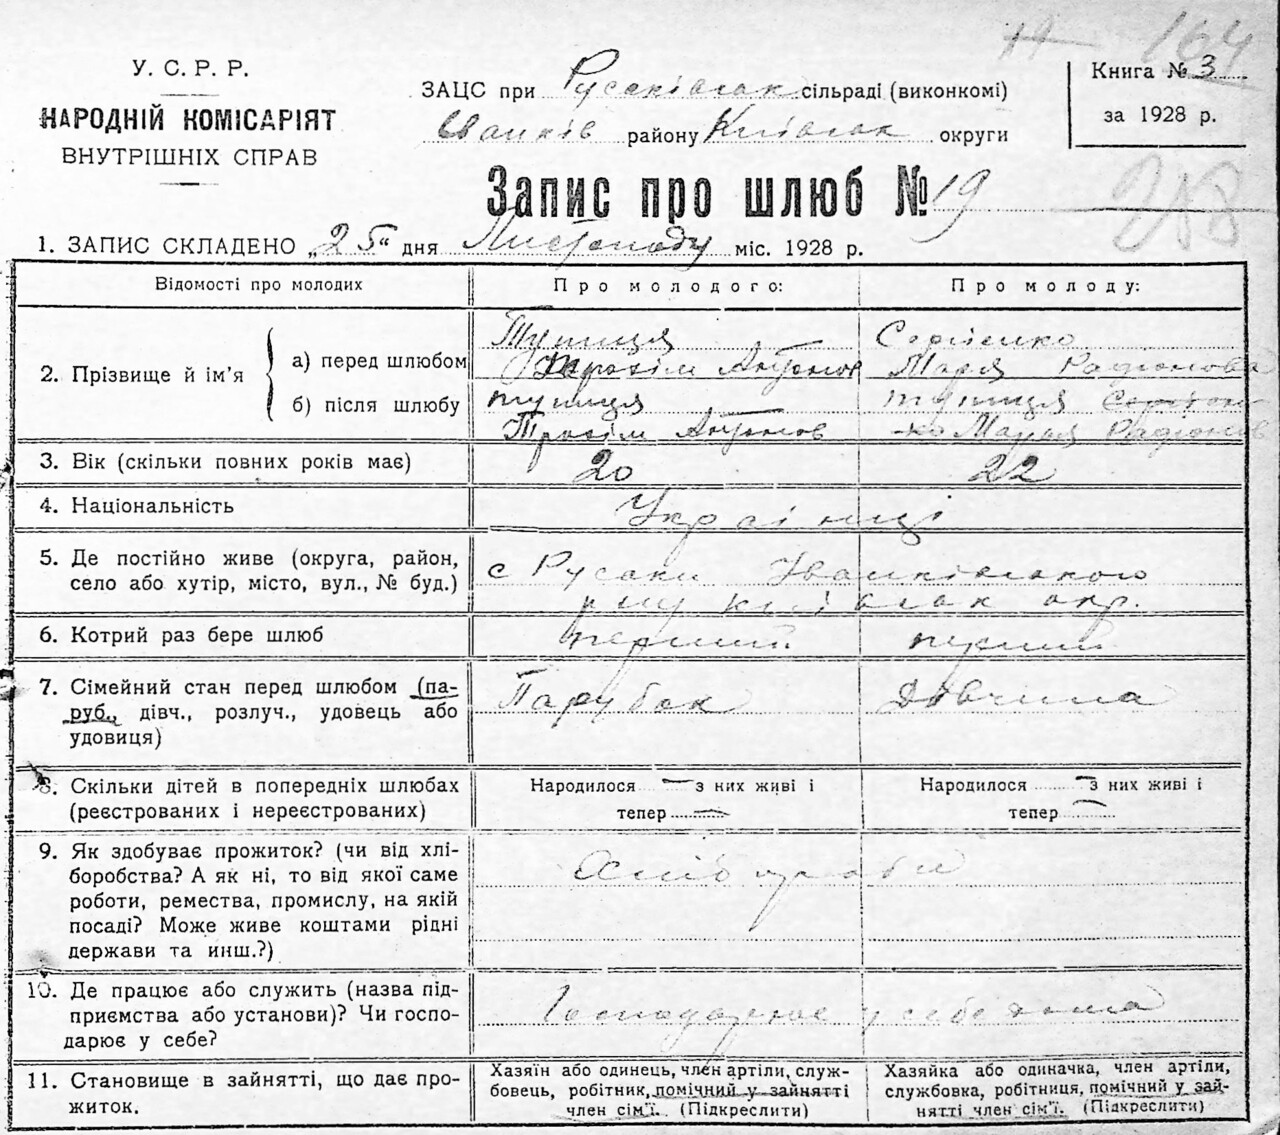 164
У. С. Р. Р.
НАРОДНІЙ КОМІСАРІЯТ
ВНУТРІШНІХ СПРАВ
ЗАЦС при Русаківськ сільраді (виконкомі)
Іванків району Київськ округи
Книга № 3
за 1928 р.
Запис про шлюб № 19
218
1. ЗАПИС СКЛАДЕНО „25" дня Листопаду міс. 1928 р.
Відомості про молодих
Про молодого:
Про молоду:
2. Прізвище й ім'я
а) перед шлюбом
Тупиця
Трохім Антонов
Сергієнко
Марія Радіонова
б) після шлюбу
тупиця
Трохім Антонов
тупиця
-ко Марья Радіонов
3. Вік (скільки повних років має)
20
22
4. Національність
Українці
5. Де постійно живе (округа, район,
село або хутір, місто, вул., № буд.)
с Русаки Іванківського
р-ну київськ окр.
6. Котрий раз бере шлюб
перший.
перший
7. Сімейний стан перед шлюбом (па-
руб., дівч., розлуч., удовець або
удовиця)
Парубок
Дівчина
8. Скільки дітей в попередніх шлюбах
(реєстрованих і нереєстрованих)
Народилося — з них живі і
тепер —
Народилося — з них живі і
тепер —
9. Як здобуває прожиток? (чи від хлі-
боробства? А як ні, то від якої саме
роботи, ремества, промислу, на якій
посаді? Може живе коштами рідні
держави та инш.?)
10. Де працює або служить (назва під-
приємства або установи)? Чи госпо-
дарює у себе?
Господарює у себе дома
11. Становище в зайнятті, що дає про-
житок.
Хазяїн або одинець, член артіли, служ-
бовець, робітник, помічний у зайнятті
член сім'ї. (Підкреслити)
Хазяйка або одиначка, член артіли,
службовка, робітниця, помічний у зай-
нятті член сім'ї. (Підкреслити)